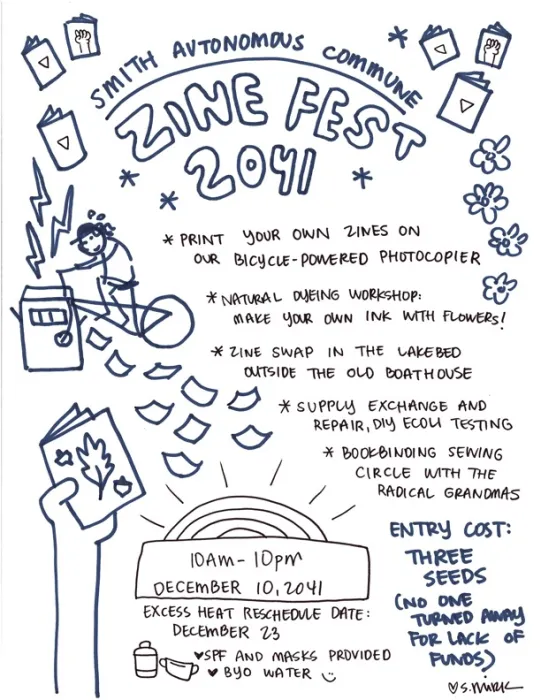 SMITH AUTONOMOUS COMMUNE
ZINE FEST
2041
* PRINT YOUR OWN ZINES ON
OUR BICYCLE-POWERED PHOTOCOPIER
* NATURAL DYEING WORKSHOP:
MAKE YOUR OWN INK WITH FLOWERS!
* ZINE SWAP IN THE LAKEBED
OUTSIDE THE OLD BOATHOUSE
* SUPPLY EXCHANGE AND
REPAIR, DIY ECOLI TESTING
* BOOKBINDING SEWING
CIRCLE WITH THE
RADICAL GRANDMAS
10AM - 10PM
DECEMBER 10, 2041
EXCESS HEAT RESCHEDULE DATE:
DECEMBER 23
♥SPF AND MASKS PROVIDED
♥ BYO WATER ☺
ENTRY COST:
THREE
SEEDS
(NO ONE
TURNED AWAY
FOR LACK OF
FUNDS)
♡S.MIRK